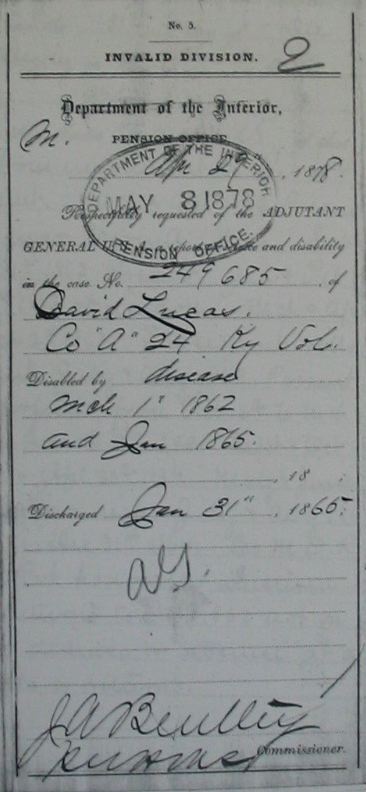 No. 5.
INVALID DIVISION. 2
Department of the Interior,
M. PENSION OFFICE
Apr 29, 1878.
DEPARTMENT OF THE INTERIOR
MAY 8 1878
PENSION OFFICE.
Respectfully requested of the ADJUTANT
GENERAL and disability
in the case No. 249685 of
David Lucas.
Co "A" 24 Ky Vol.
Disabled by disease
Mch 1" 1862
and Jan 1865.
, 18 ;
Discharged Jan 31", 1865;
J A Bentley
Commissioner.